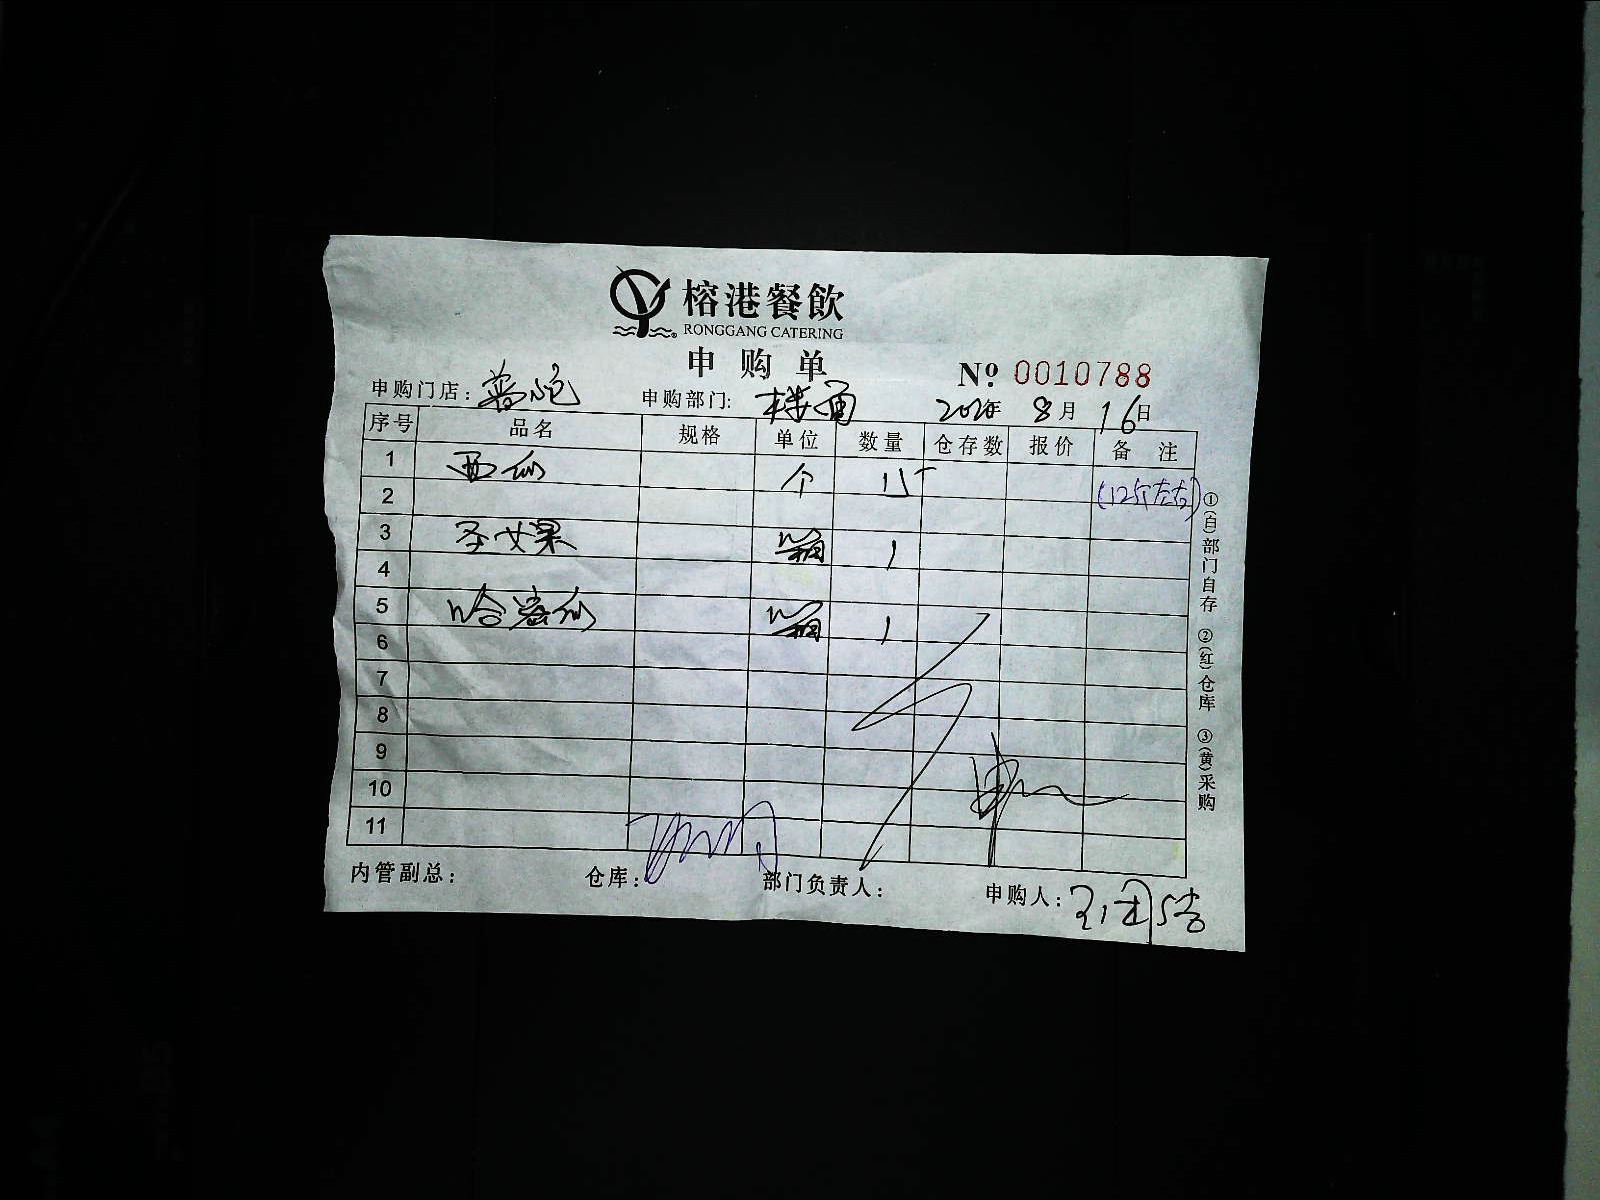 榕港餐飲
RONGGANG CATERING
申购单
Nº 0010788
申购门店：普陀 申购部门：楼面 2020年 8月 16日
序号 品名 规格 单位 数量 仓存数 报价 备 注
1 西仙 个 15 (12斤左右)
2
3 圣女果 箱 1
4
5 哈密仙 箱 1
6
7
8
9
10
11
内管副总： 仓库： 部门负责人： 申购人：
①(白)部门自存 ②(红)仓库 ③(黄)采购